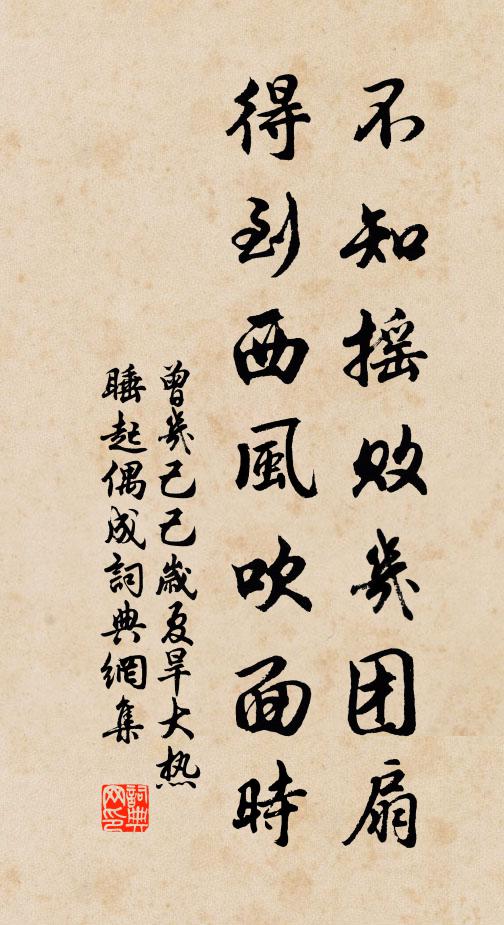 不知摇败幾团扇
得到西風吹面時
曾幾己己歲夏旱大热
睡起偶成詞典網集
詞典
网印